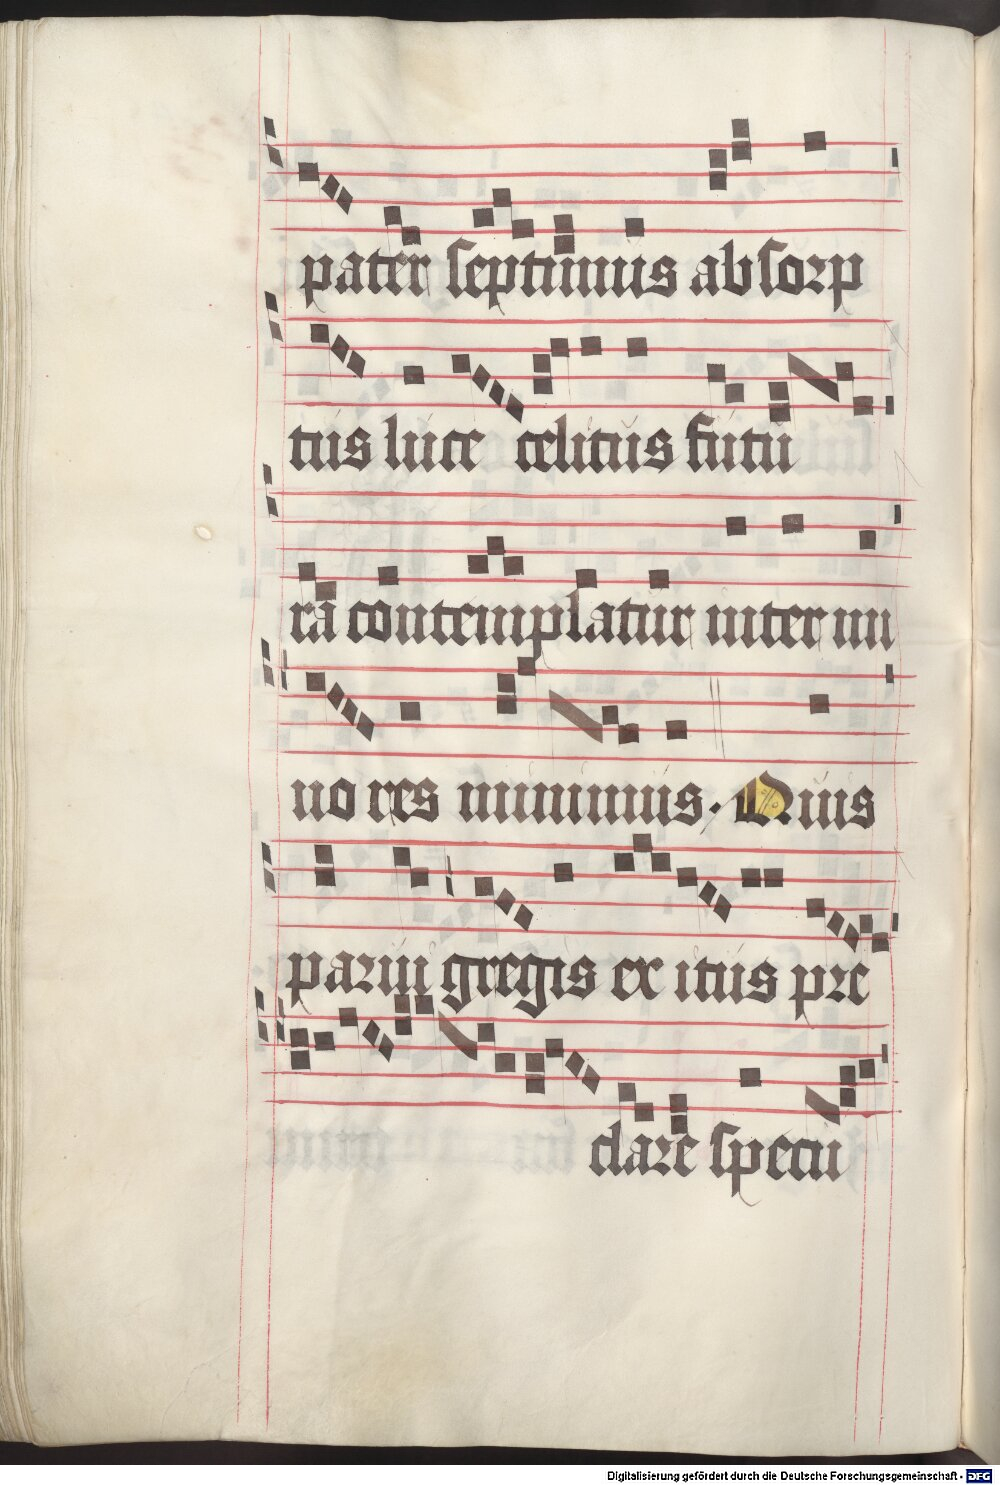 pater septimus absorp
tus luce celitus futu
ra contemplatur inter nu
no res minimus. Quis
parui gregis exitus pre
clare specu
Digitalisierung gefördert durch die Deutsche Forschungsgemeinschaft - DFG